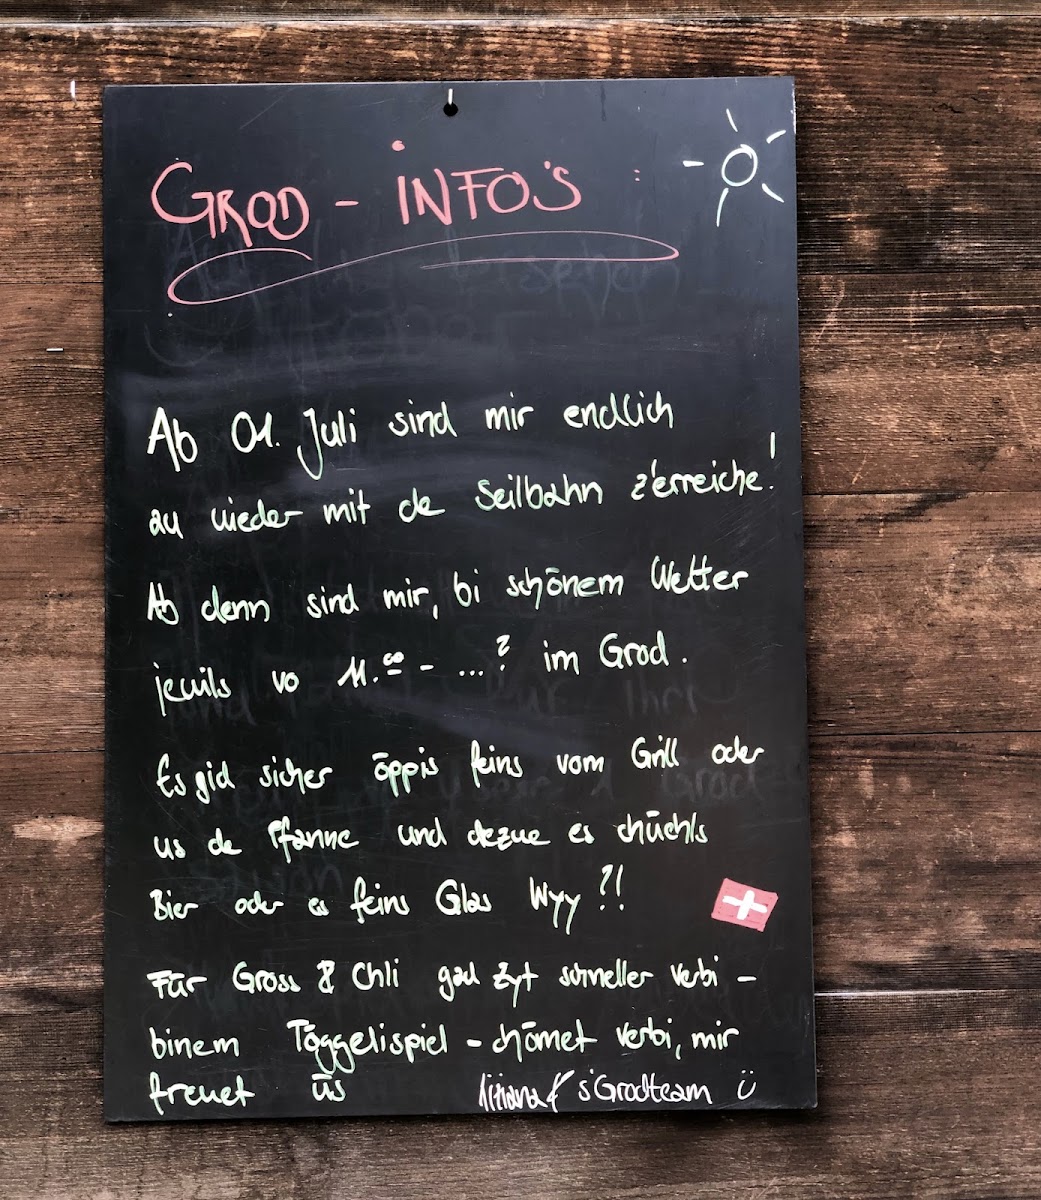 GROD - INFO'S :
Ab 01. Juli sind mir endlich
au wieder mit de Seilbahn z'erreiche!
Ab denn sind mir, bi schönem Wetter
jewils vo 11.⁰⁰ - ...? im Grod.
Es gid sicher öppis feins vom Grill oder
us de Pfanne und dezue es chüehls
Bier oder es feins Glas Wyy ?!
Für Gross & Chli gad Zyt schneller verbi -
binem Töggelispiel - chömet verbi, mir
freuet üs
Titiana & s'Grodteam ü